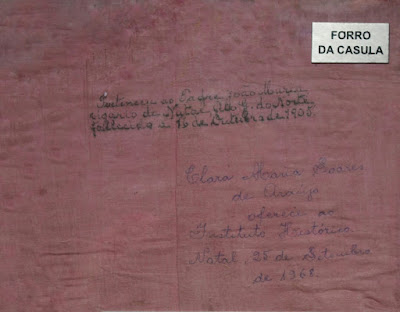 FORRO
DA CASULA
Pertenceu ao Padre João Maria
vigario de Natal do Norte
falleceu a 16 de Outubro de 1905
Clara Maria Soares
de Araujo
oferece ao
Instituto Historico
Natal, 28 de Setembro
de 1968